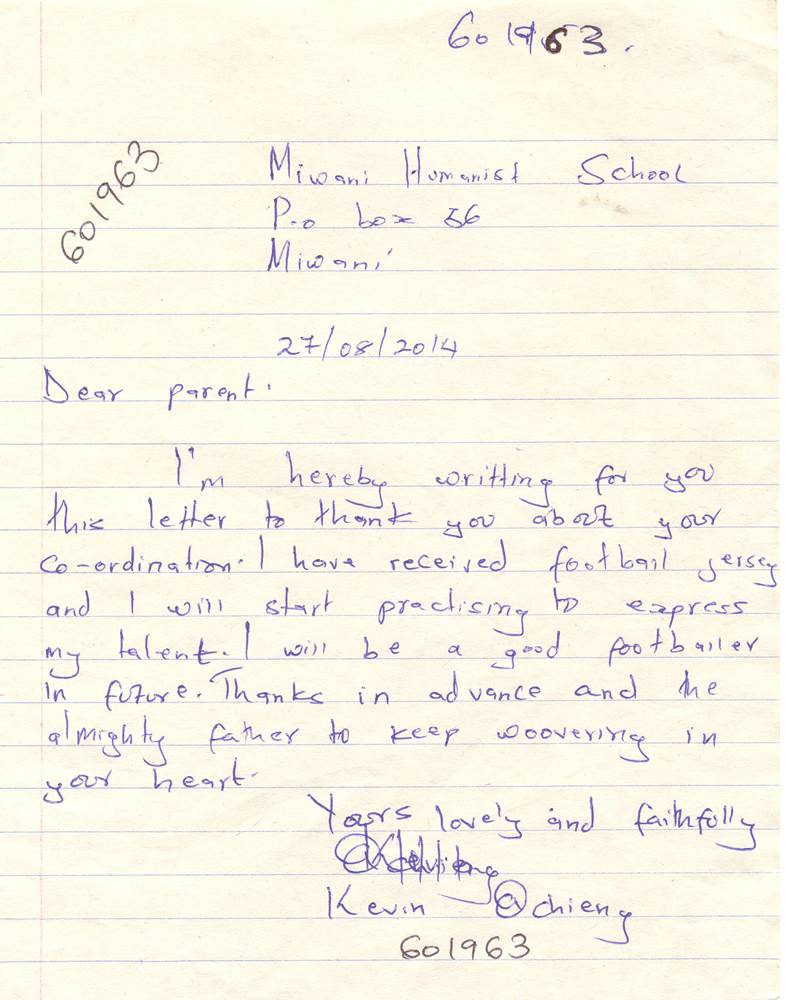 601963.
601963
Miwani Humanist School
P.o box 56
Miwani
27/08/2014
Dear parent.
I'm hereby writting for you
this letter to thank you about your
co-ordination. I have received football jersey
and I will start practising to express
my talent. I will be a good footballer
in future. Thanks in advance and the
almighty father to keep woovering in
your heart.
Yours lovely and faithfully
Kevin Ochieng
601963